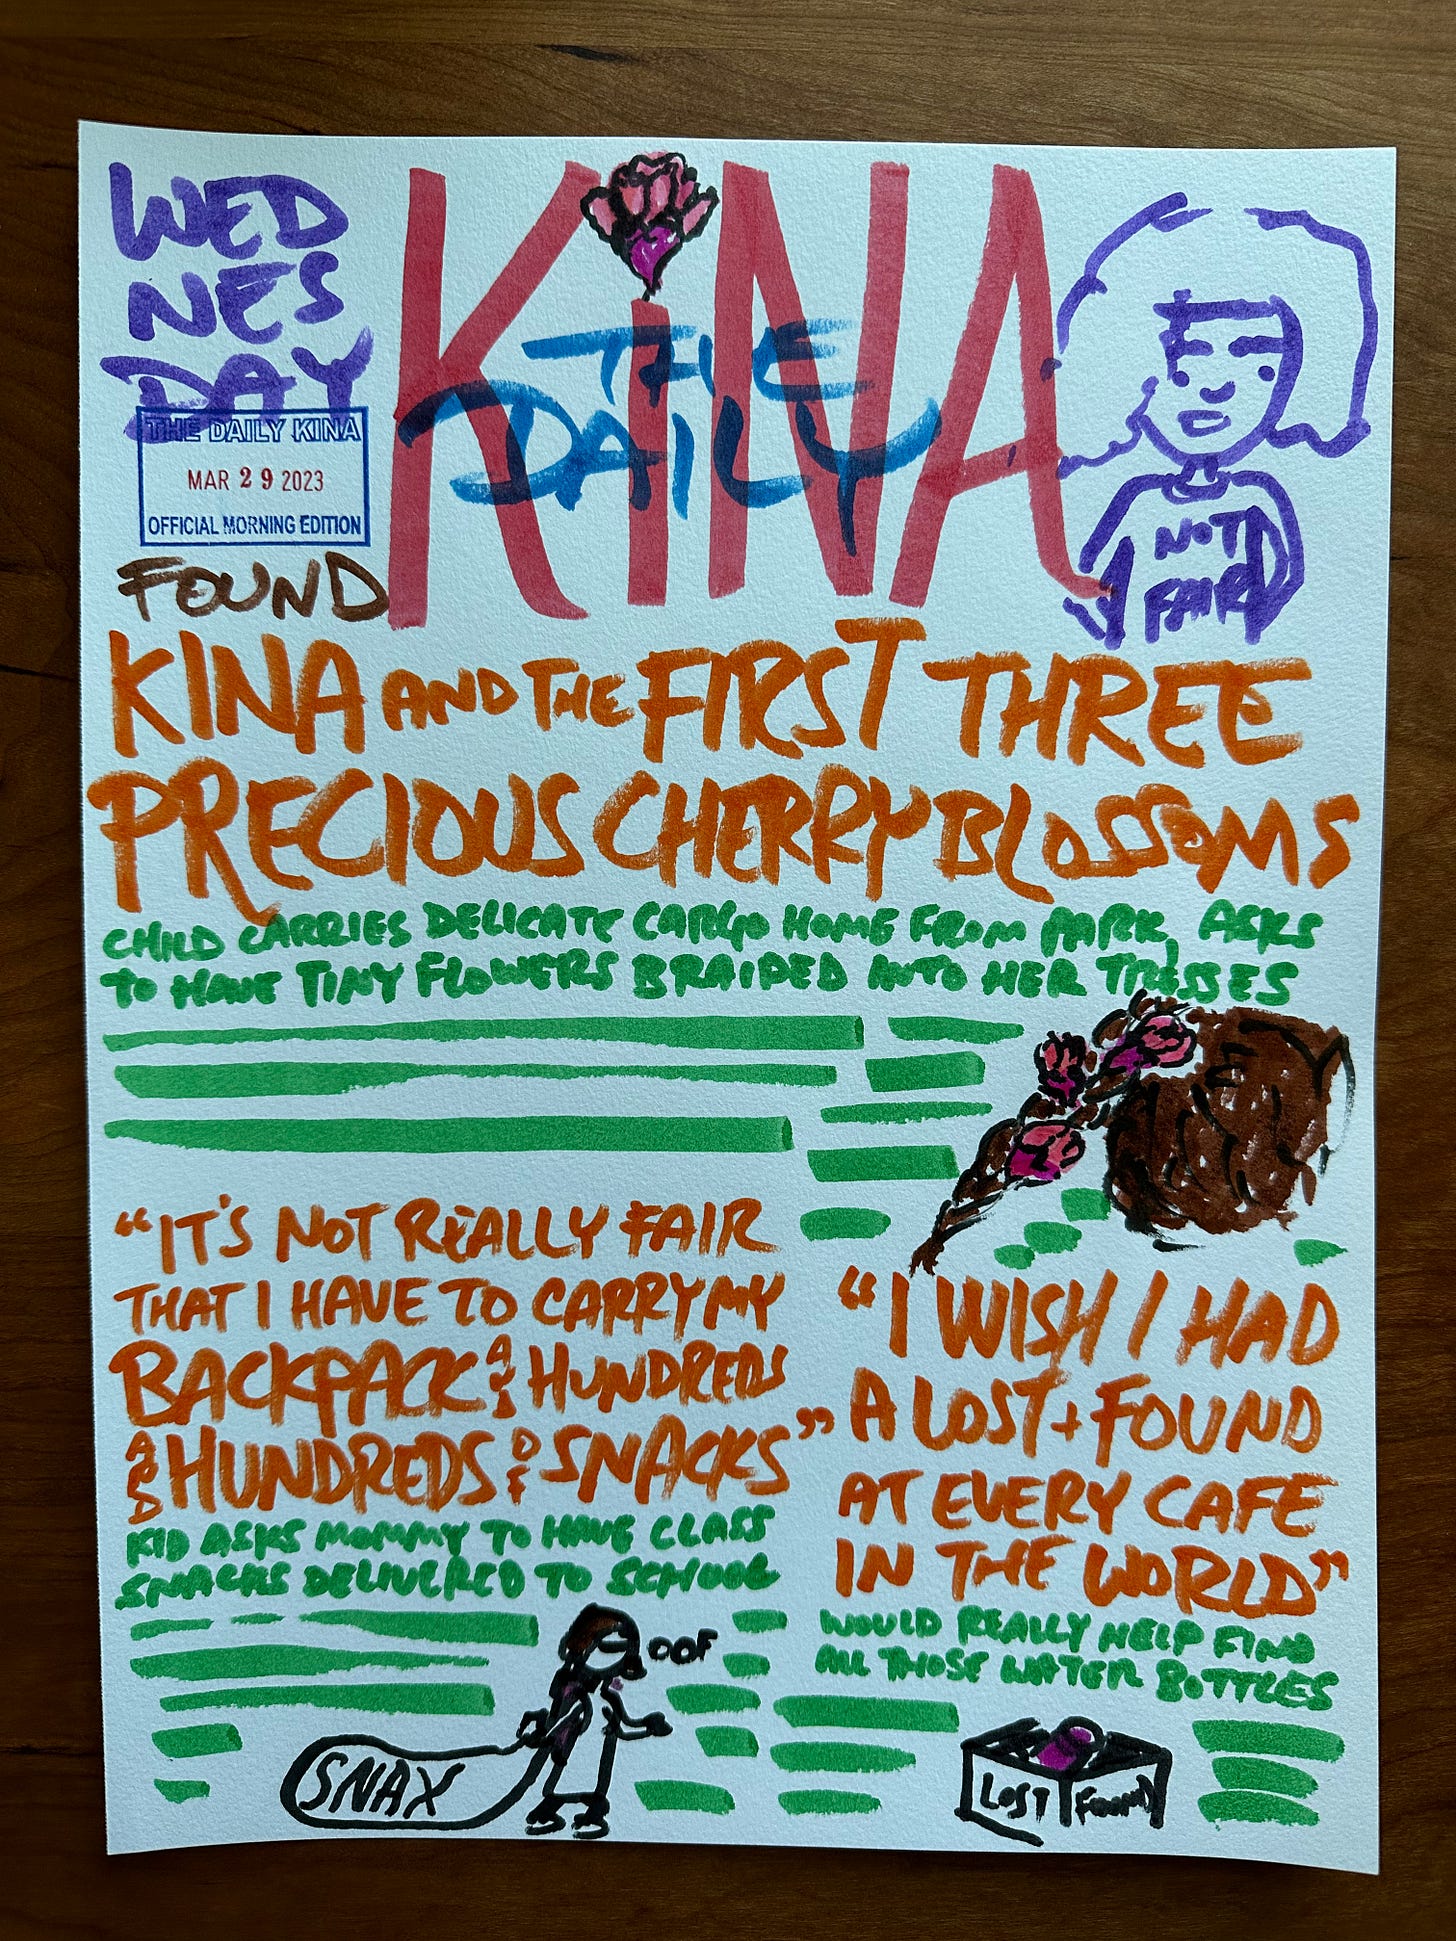 WED
NES
DAY
THE DAILY KINA
MAR 29 2023
OFFICIAL MORNING EDITION
KiNA
THE
DAILY
NOT
FAIR
FOUND
KINA AND THE FIRST THREE
PRECIOUS CHERRY BLOSSOMS
CHILD CARRIES DELICATE CARGO HOME FROM PARK, ASKS
TO HAVE TINY FLOWERS BRAIDED INTO HER TRESSES
"IT'S NOT REALLY FAIR
THAT I HAVE TO CARRY MY
BACKPACK AND HUNDREDS
AND HUNDREDS OF SNACKS"
KID ASKS MOMMY TO HAVE CLASS
SNACKS DELIVERED TO SCHOOL
OOF
SNAX
"I WISH I HAD
A LOST + FOUND
AT EVERY CAFE
IN THE WORLD"
WOULD REALLY HELP FIND
ALL THOSE WATER BOTTLES
LOST FOUND